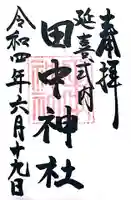 奉拝
延喜式内
田中神社
令和四年六月十九日